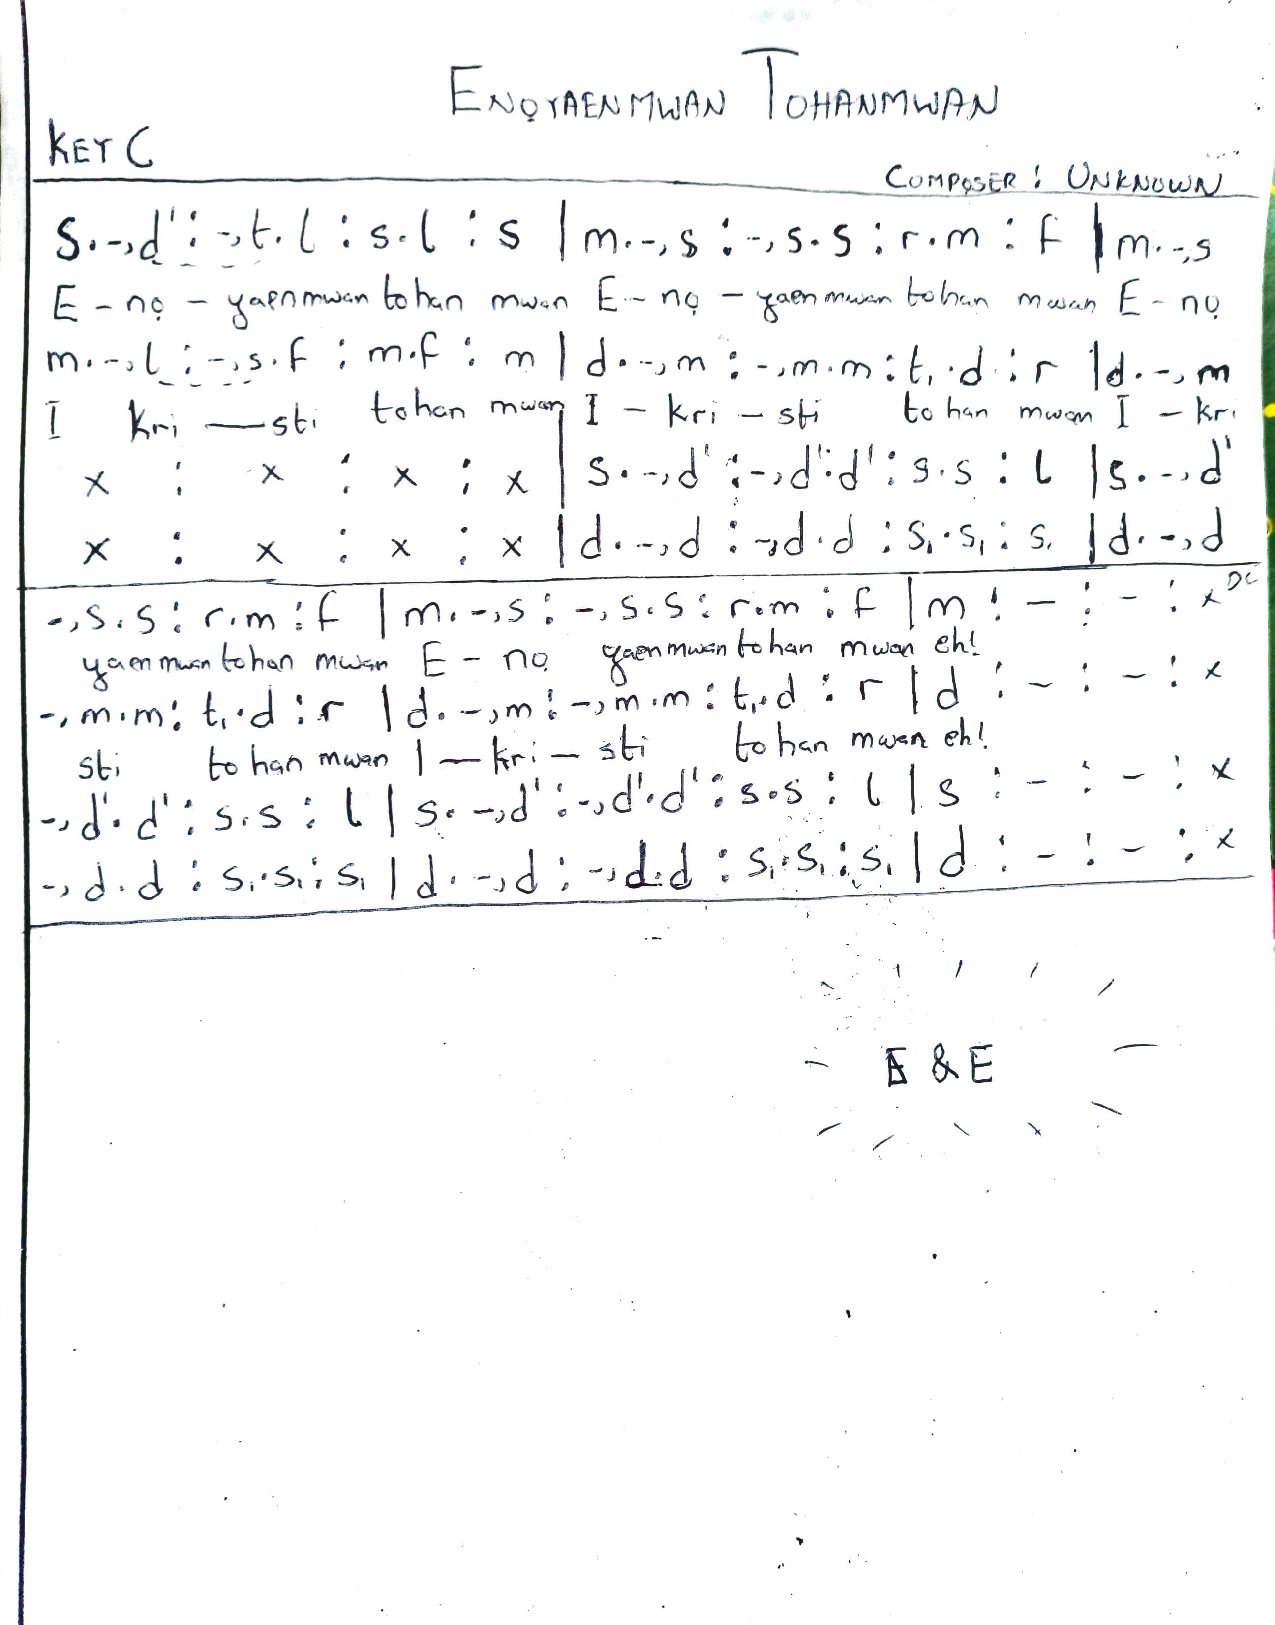 ENỌYAENMWAN TOHANMWAN
KEY C
COMPOSER : UNKNOWN
s.-,d' : -,t.l : s.l : s | m.-,s : -,s.s : r.m : f | m.-,s
E - nọ - yaenmwan tohan mwan E - nọ - yaenmwan tohan mwan E - nọ
m.-,l : -,s.f : m.f : m | d.-,m : -,m.m : t,.d : r | d.-,m
I kri — sti tohan mwan I - kri - sti tohan mwan I - kri
x : x : x : x | s.-,d' : -,d'.d' : s.s : l | s.-,d'
x : x : x : x | d.-,d : -,d.d : s,.s, : s, | d.-,d
-,s.s : r.m : f | m.-,s : -,s.s : r.m : f | m : - : - : x DC
yaenmwan tohan mwan E - nọ yaenmwan tohan mwan eh!
-,m.m : t,.d : r | d.-,m : -,m.m : t,.d : r | d : - : - : x
sti tohan mwan I — kri - sti tohan mwan eh!
-,d'.d' : s.s : l | s.-,d' : -,d'.d' : s.s : l | s : - : - : x
-,d.d : s,.s, : s, | d.-,d : -,d.d : s,.s, : s, | d : - : - : x
E & E